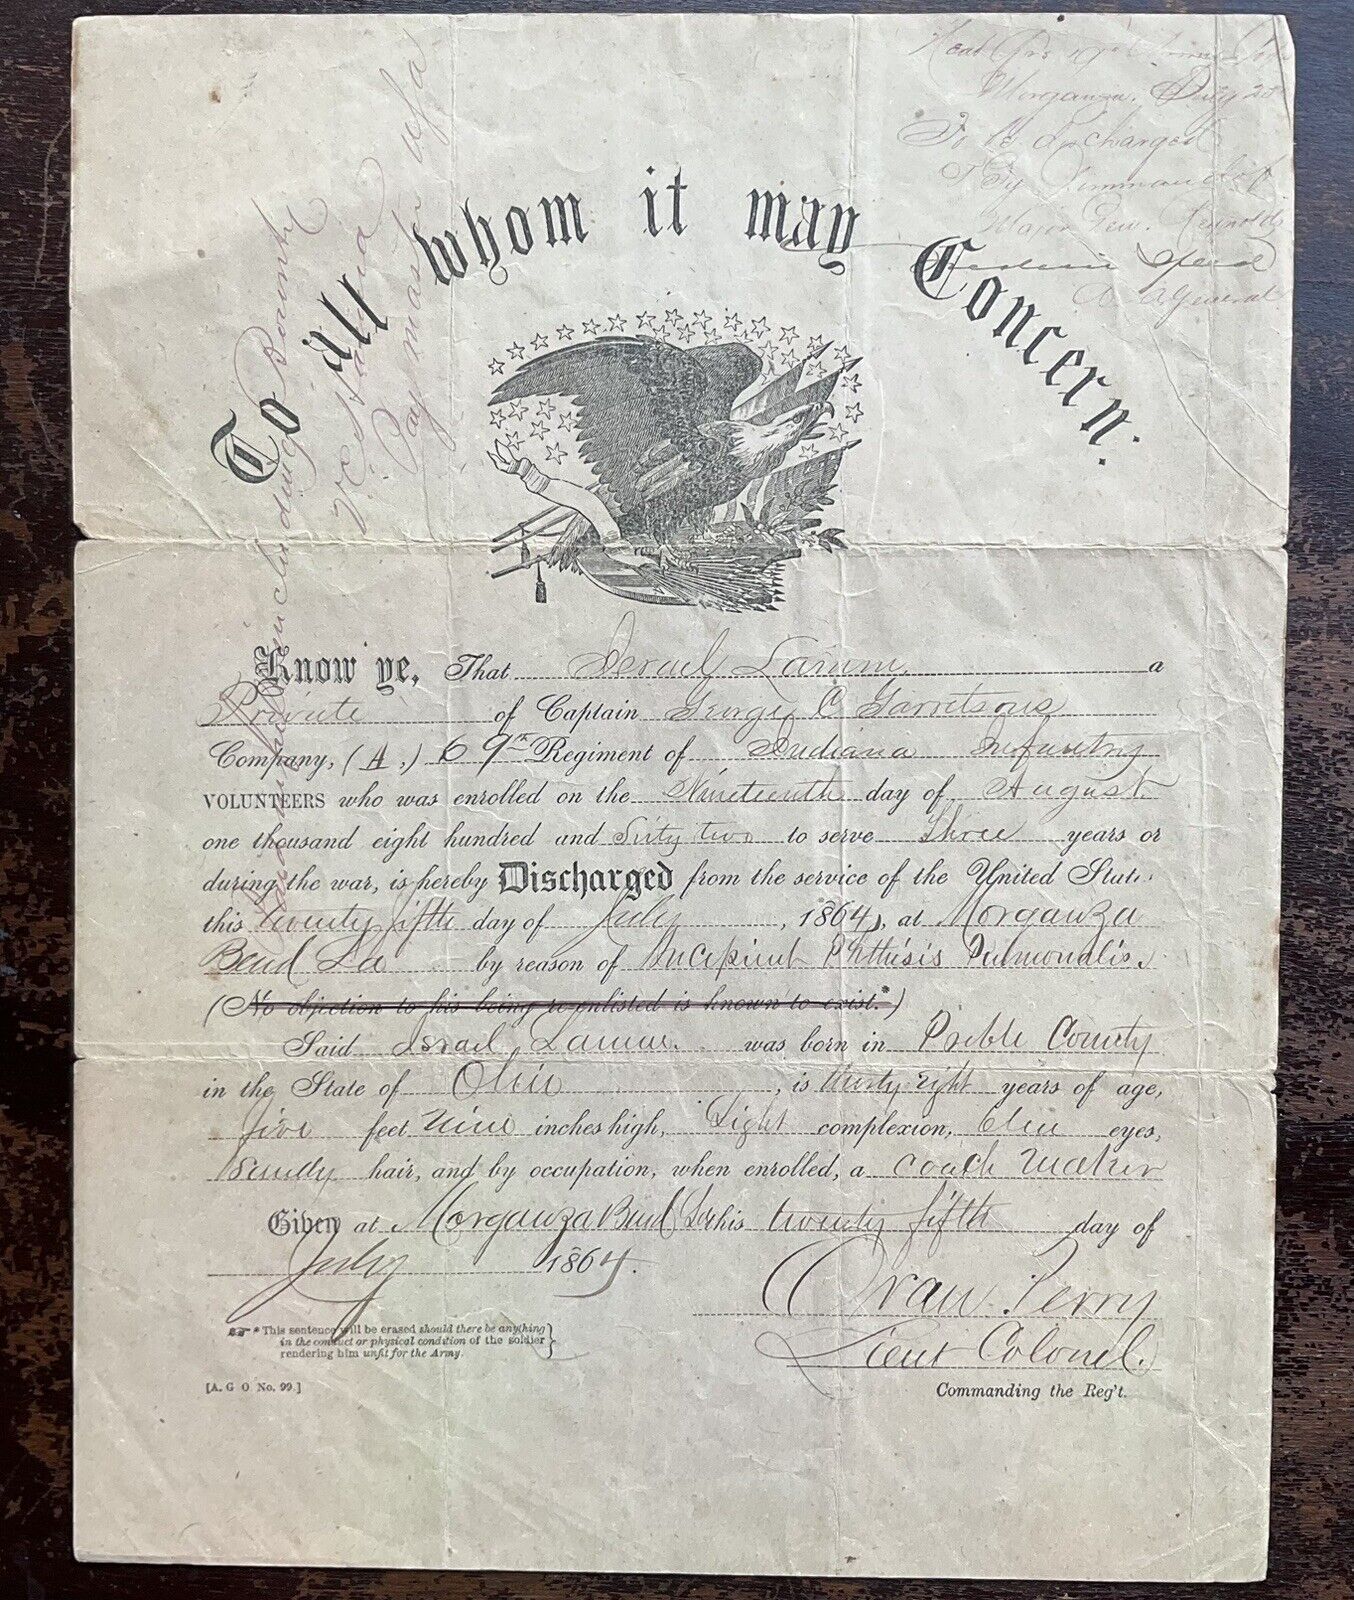 Morganza, July 25
To be discharged
Major Gen. Reynolds
A A General
including Bounty
Paymaster USA
To all whom it may Concern:
Know ye, That Israel Lamm, a
Private of Captain George C Garretsons
Company, (A,) 69th Regiment of Indiana Infantry
VOLUNTEERS who was enrolled on the Nineteenth day of August
one thousand eight hundred and Sixty two to serve Three years or
during the war, is hereby Discharged from the service of the United States
this twenty fifth day of July, 1864, at Morganza
Bend La by reason of Incipient Phthisis Pulmonalis.
(No objection to his being re-enlisted is known to exist.*)
Said Israel Lamm. was born in Preble County
in the State of Ohio, is thirty eight years of age,
five feet nine inches high, Light complexion, blue eyes,
Sandy hair, and by occupation, when enrolled, a coach maker
Given at Morganza Bend La this twenty fifth day of
July 1864.
Oran Perry
Lieut Colonel.
Commanding the Reg't.
*This sentence will be erased should there be anything
in the conduct or physical condition of the soldier
rendering him unfit for the Army.
[A. G O No. 99.]